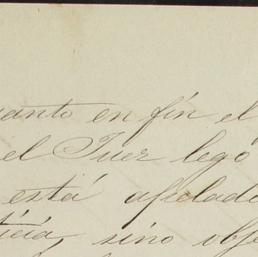 uanto en fin el
el Juez legó
está apelado
ticia, sino obje